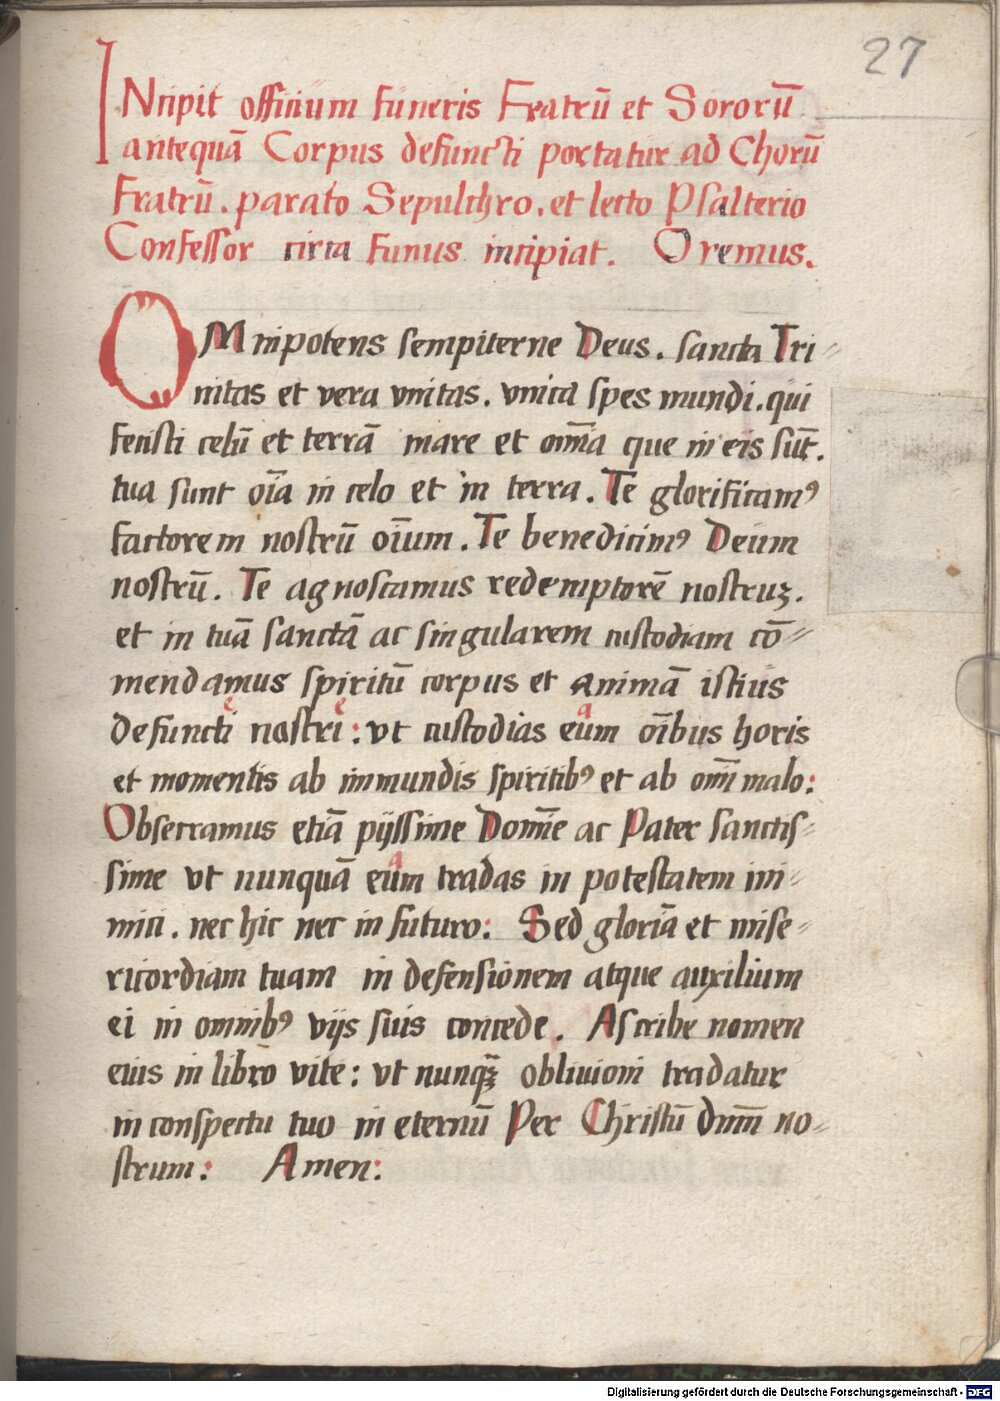 27
INcipit officium funeris Fratrū et Sororū
antequā Corpus defuncti portatur ad Chorū
Fratrū. parato Sepulchro. et lecto Psalterio
Confessor circa funus incipiat. Oremus.
OMnipotens sempiterne Deus. sancta Tri-
nitas et vera vnitas. vnica spes mundi. qui
fecisti celū et terrā mare et om̄ia que in eis sūt.
tua sunt oīa in celo et in terra. Te glorificamꝰ
factorem nostrū oīum. Te benedicimꝰ Deum
nostrū. Te agnoscamus redemptorē nostruz.
et in tuā sanctā ac singularem custodiam cō-
mendamus spiritū corpus et animā istius
e e a
defuncti nostri: vt custodias eum oībus horis
et momentis ab immundis spiritibꝰ et ab om̄i malo:
Obsecramus etiā pijssime Domīe ac Pater sanctis-
a
sime vt nunquā eum tradas in potestatem ini-
mici. nec hic nec in futuro: Sed gloriā et mise-
ricordiam tuam in defensionem atque auxilium
ei in omnibꝰ vijs suis concede. Ascribe nomen
eius in libro vite: vt nunqꝫ obliuioni tradatur
in conspectu tuo in eternū Per Christū dnm̄ no-
strum: Amen:
Digitalisierung gefördert durch die Deutsche Forschungsgemeinschaft - DFG